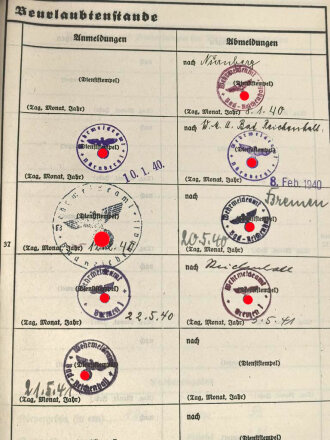 Beurlaubtenstande
Anmeldungen
Abmeldungen
nach Nürnberg
(Dienststempel)
Wehrmeldeamt
Bad Reichenhall
(Tag, Monat, Jahr)
(Tag, Monat, Jahr) 8.1.40
nach W.M.A. Bad Reichenhall
Wehrmeldeamt
Nürnberg
(Dienststempel)
(Tag, Monat, Jahr) 10.1.40.
(Tag, Monat, Jahr) 8. Feb. 1940
nach Bremen
(Dienststempel)
Wehrmeldeamt
Bad Reichenhall
37
(Tag, Monat, Jahr)
(Tag, Monat, Jahr) 20.5.40
nach Reichenhall
Wehrmeldeamt
Bremen 1
(Dienststempel)
Wehrmeldeamt
Bremen 1
(Tag, Monat, Jahr) 22.5.40
(Tag, Monat, Jahr) 5.41
nach
Wehrmeldeamt
Bad Reichenhall
(Dienststempel)
21.5.41
(Tag, Monat, Jahr)
(Tag, Monat, Jahr)
nach
(Dienststempel)